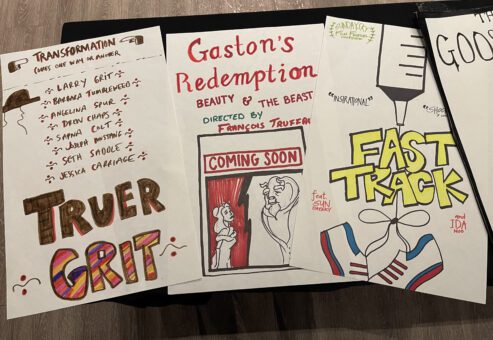 TRANSFORMATION
COMES ONE WAY OR ANOTHER
LARRY GRIT
BARBARA TUMBLEWEED
ANGELINA SPUR
DEON CHAPS
SAPNA COLT
JOSEPH MUSTANG
SETH SADDLE
JESSICA CARRIAGE
TRUER
GRIT
Gaston's
Redemption
BEAUTY & THE BEAST
DIRECTED BY
FRANÇOIS TRUFFA
COMING SOON
FILM FESTIVAL
"INSPIRATIONAL"
FAST
TRACK
feat.
SUN
and
IDA
TH
GOOS